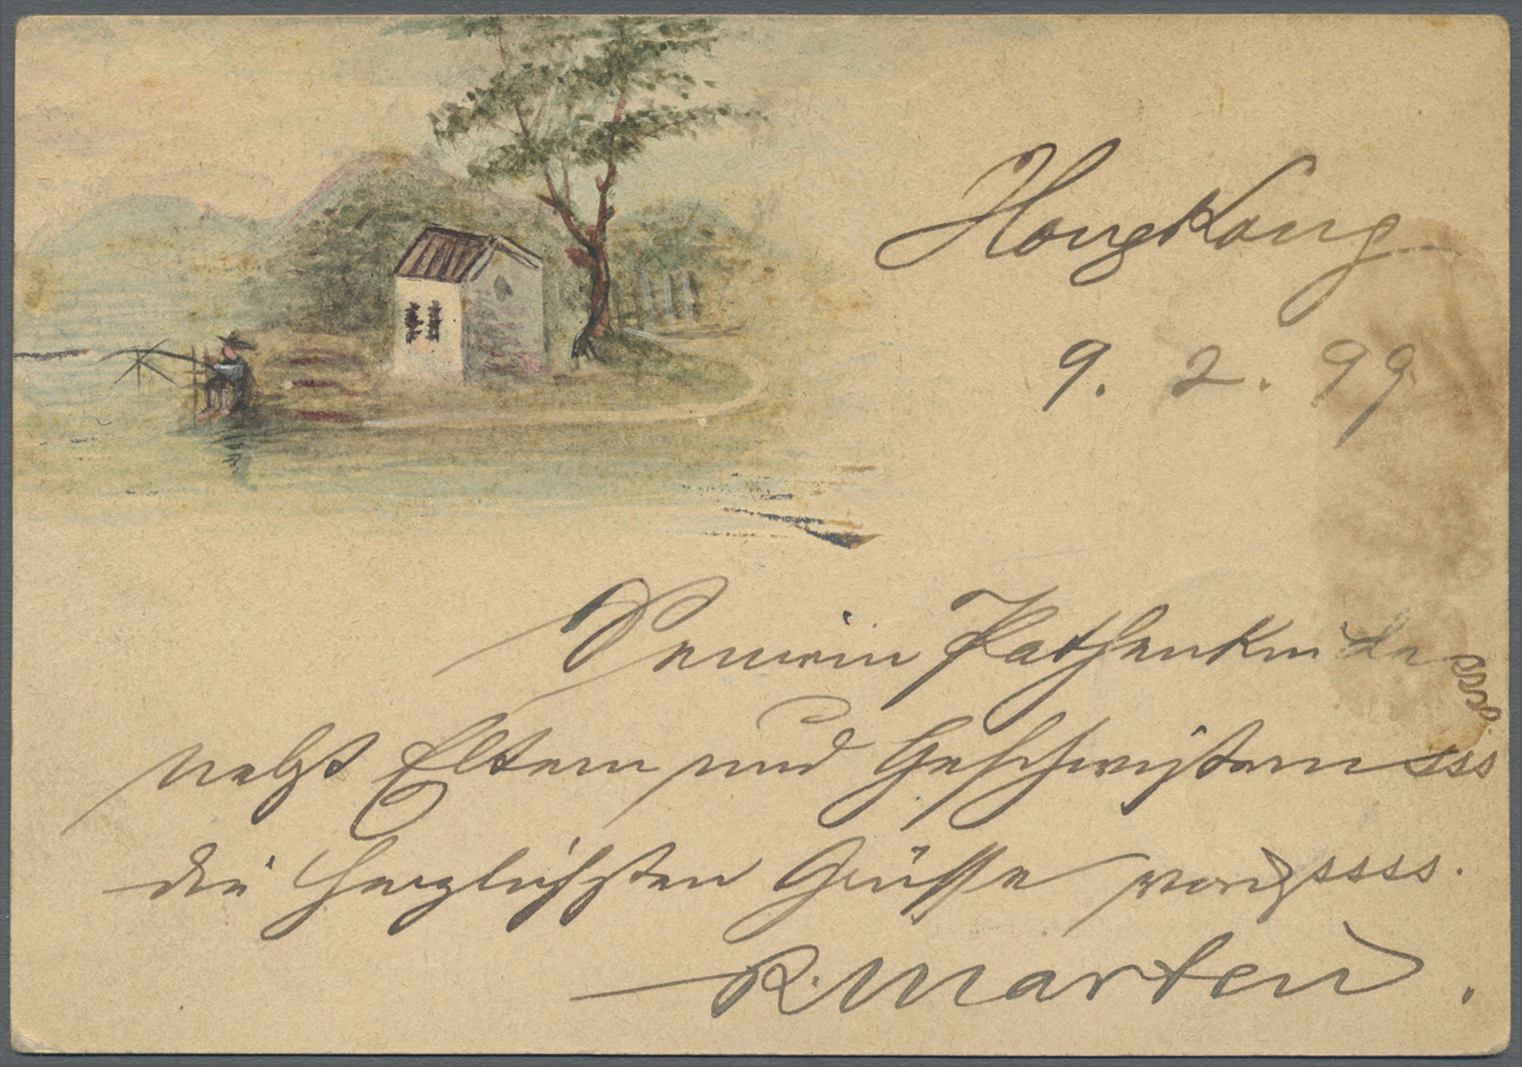 HongKong
9. 2. 99
Seinem Pathenkinde
nebst Eltern und Geschwistern
die herzlichsten Grüsse von
R. Marten.